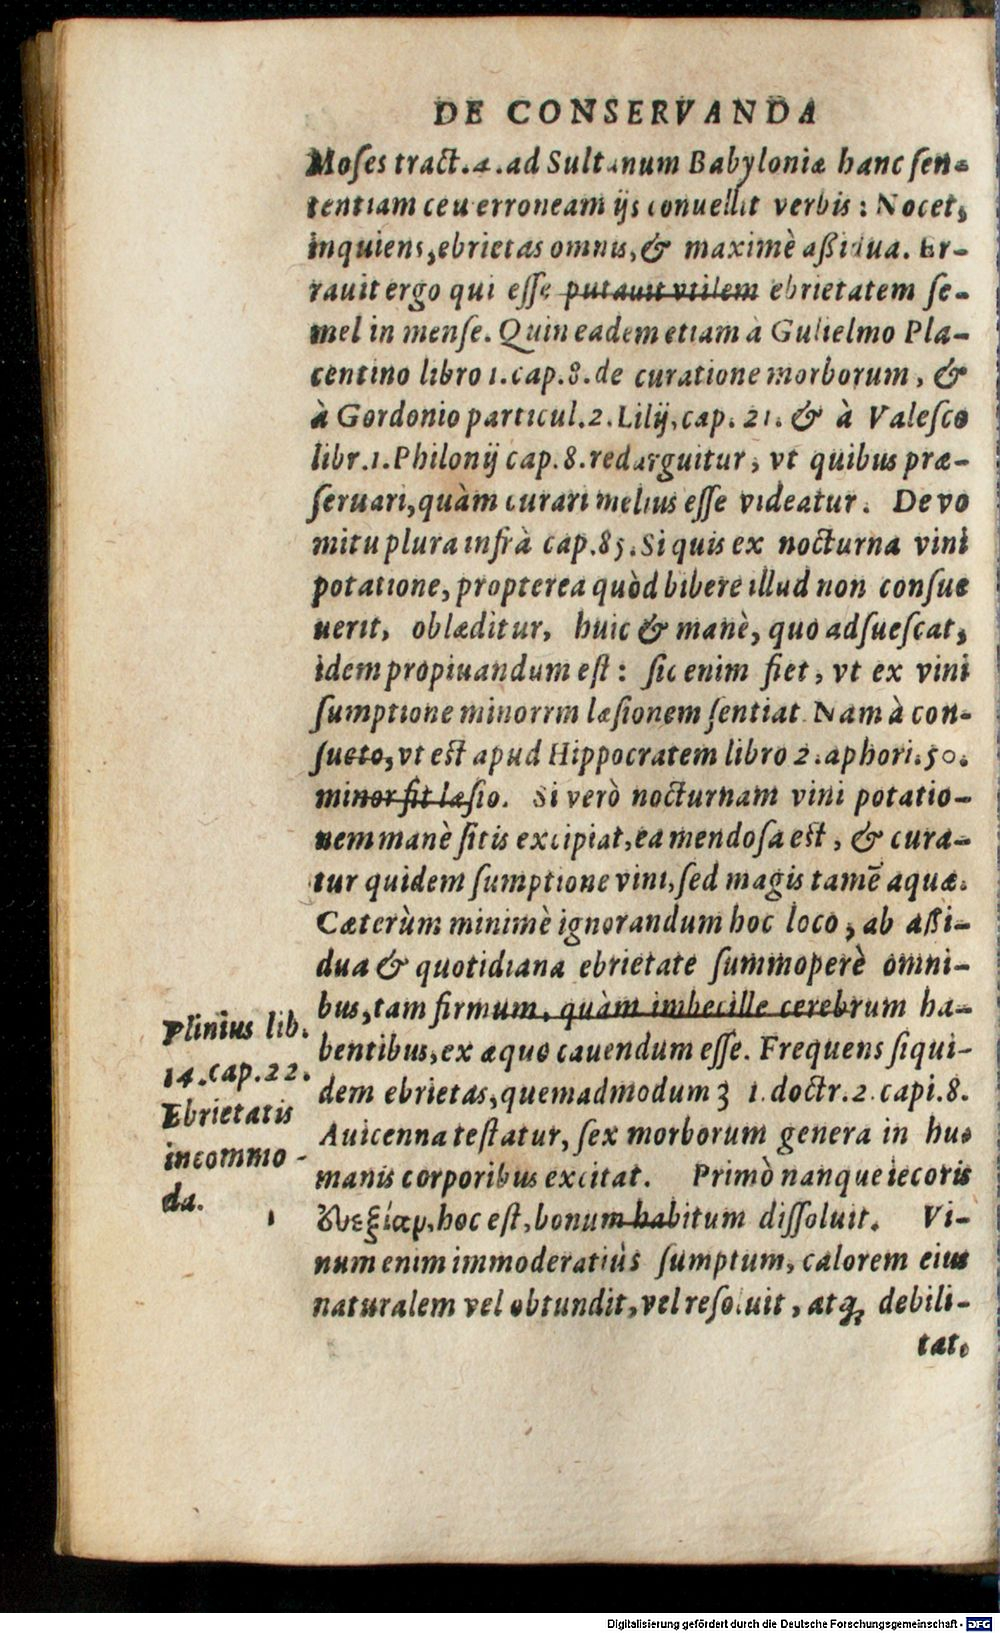 DE CONSERVANDA
Moſes tract.4.ad Sultanum Babyloniæ hanc ſen-
tentiam ceu erroneam ijs conuellit verbis : Nocet,
inquiens, ebrietas omnis, & maximè aßidua. Er-
rauit ergo qui eſſe putauit vtilem ebrietatem ſe-
mel in menſe. Quin eadem etiam à Gulielmo Pla-
centino libro 1.cap.8.de curatione morborum, &
à Gordonio particul.2.Lilij,cap.21.& à Valeſco
libr.1.Philonij cap.8.redarguitur, vt quibus præ-
ſeruari, quàm curari melius eſſe videatur. De vo
mitu plura infrà cap.85. Si quis ex nocturna vini
potatione, propterea quòd bibere illud non conſue
uerit, oblæditur, huic & manè, quo adſueſcat,
idem propiuandum eſt : ſic enim fiet, vt ex vini
ſumptione minorrm læſionem ſentiat. Nam à con-
ſueto, vt eſt apud Hippocratem libro 2.aphori.50.
minor fit læſio. Si verò nocturnam vini potatio-
nem manè ſitis excipiat, ea mendoſa eſt, & cura-
tur quidem ſumptione vini, ſed magis tamē aquæ.
Cæterùm minimè ignorandum hoc loco, ab aßi-
dua & quotidiana ebrietate ſummoperè omni-
bus, tam firmum, quàm imbecille cerebrum ha-
bentibus, ex æquo cauendum eſſe. Frequens ſiqui-
dem ebrietas, quemadmodum 3 1.doctr.2.capi.8.
Auicenna teſtatur, ſex morborum genera in hu-
manis corporibus excitat. Primò nanque iecoris
ἐυεξίαμ, hoc eſt, bonum habitum diſſoluit. Vi-
num enim immoderatiùs ſumptum, calorem eius
naturalem vel obtundit, vel reſoluit, atq; debili-
tat.
Plinius lib.
14.cap.22.
Ebrietatis
incommo-
da.